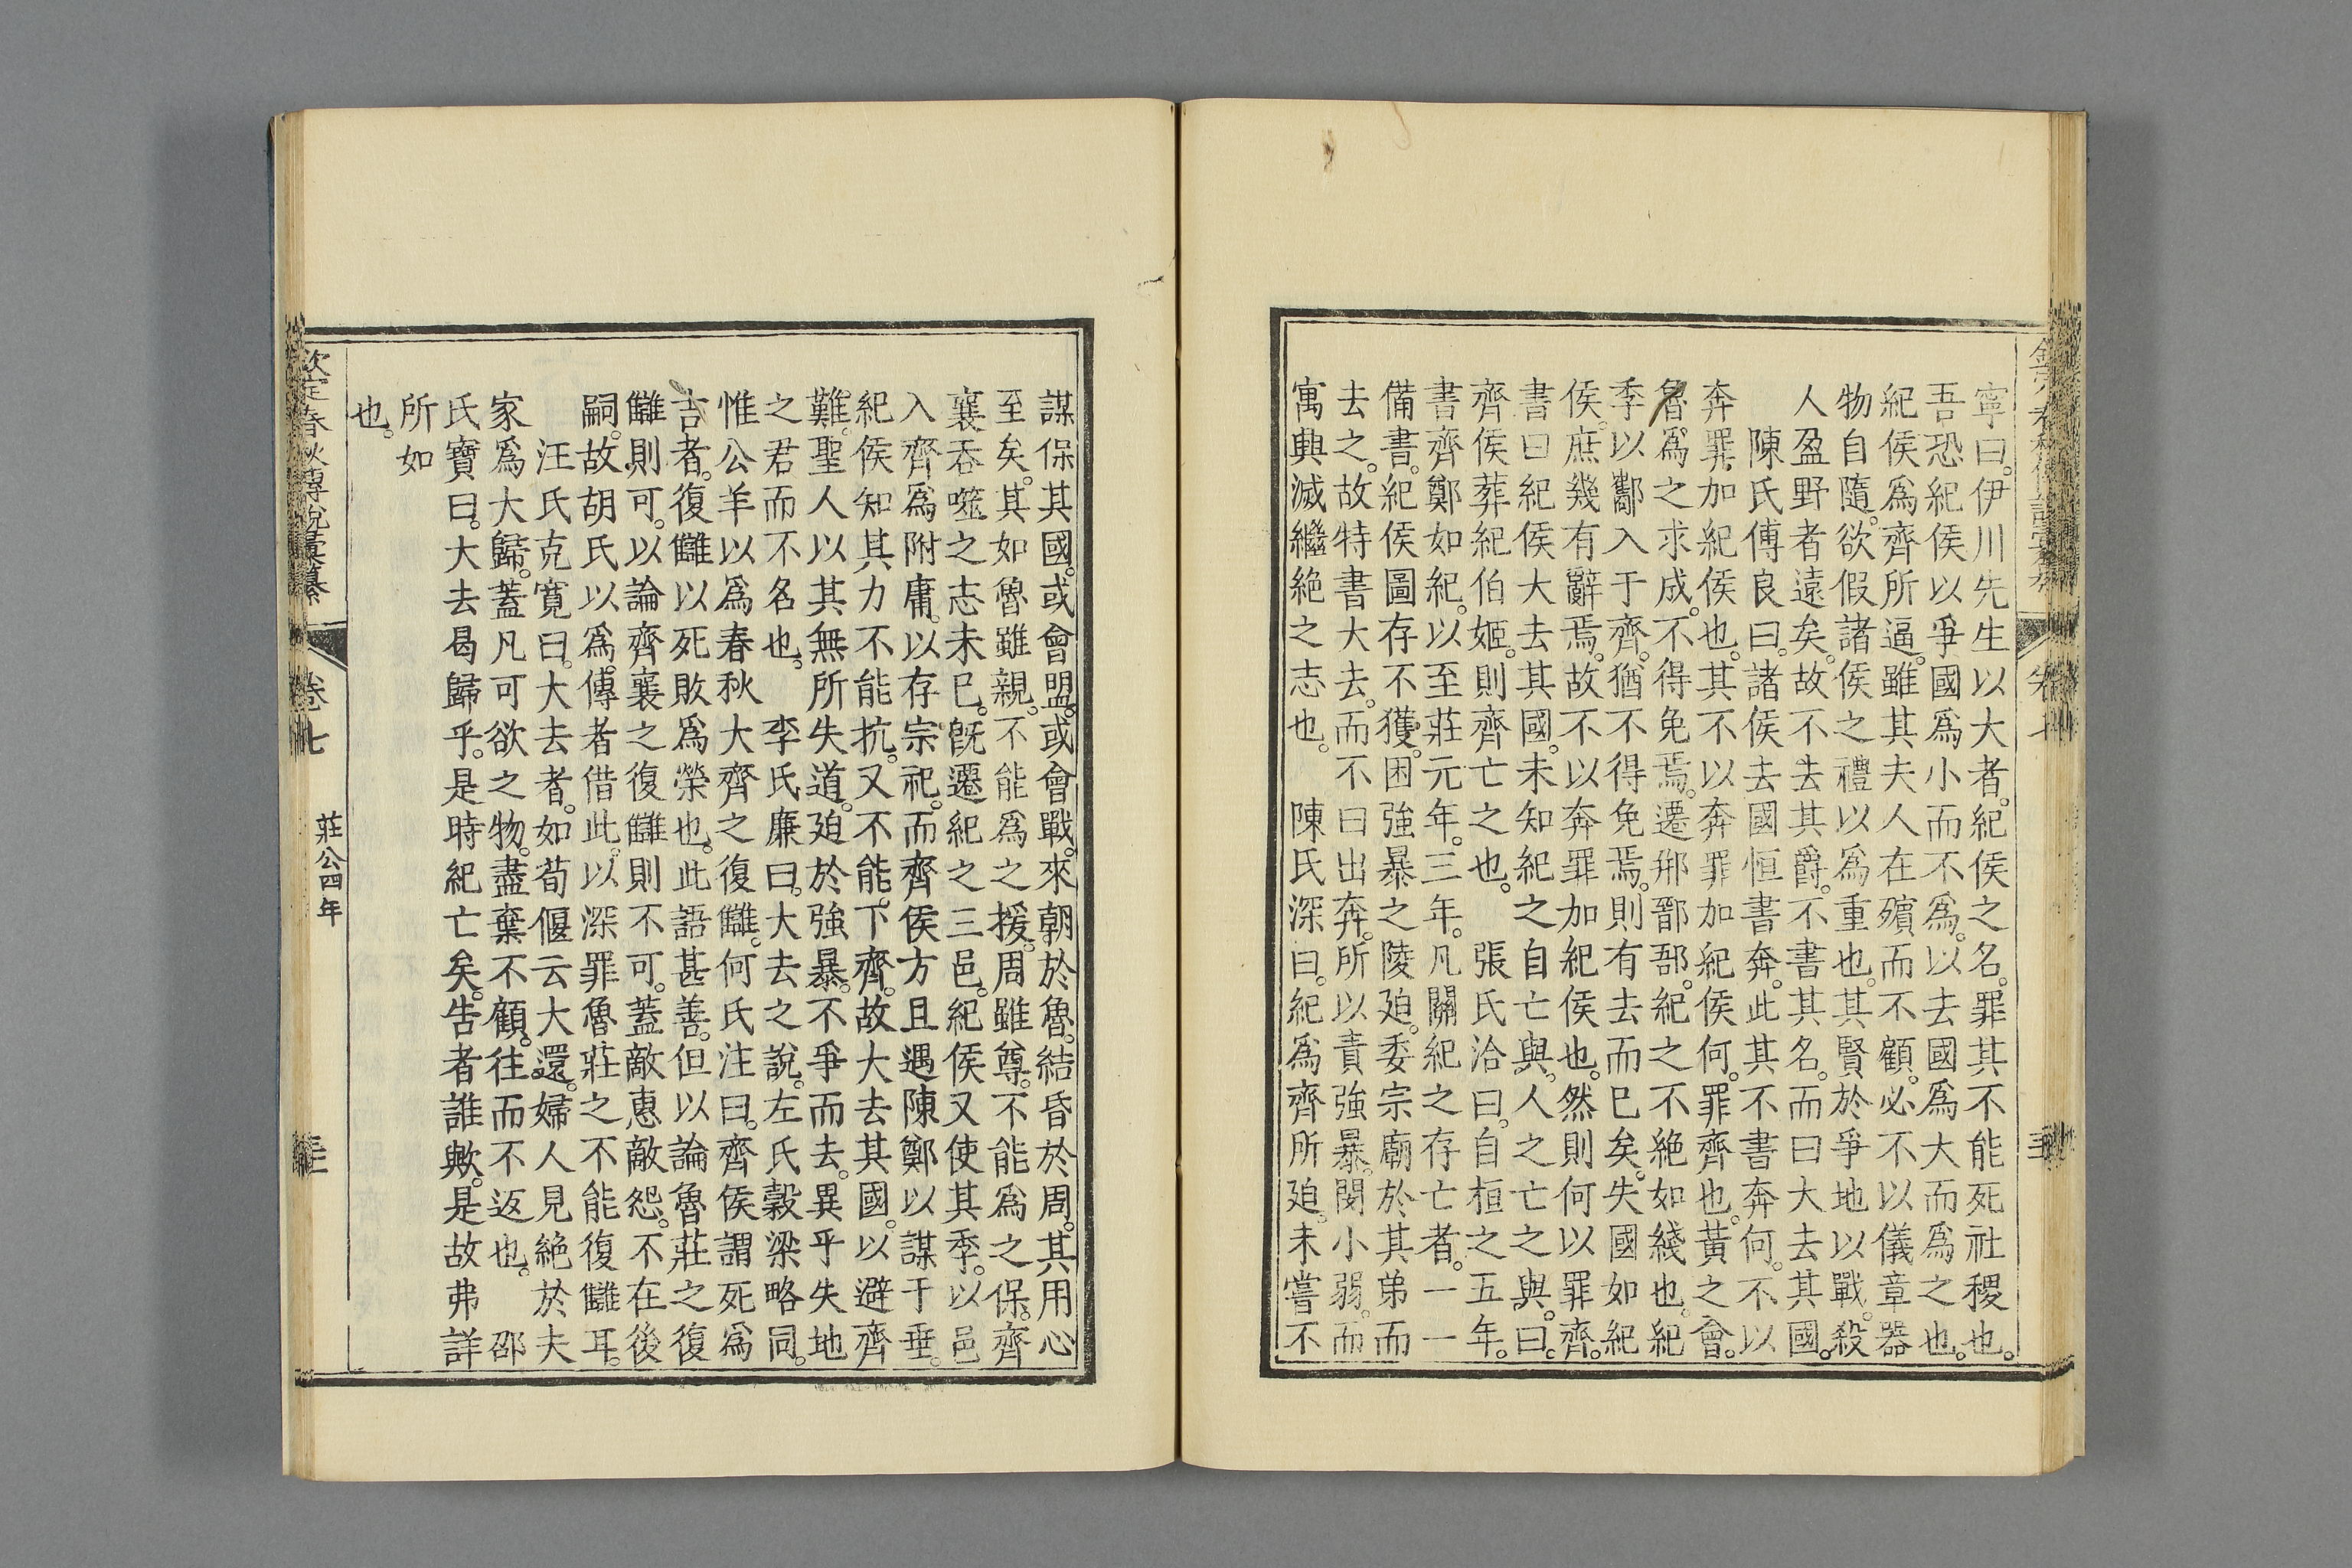 寧曰。伊川先生以大者。紀侯之名。罪其不能死社稷也。
吾恐紀侯以爭國爲小而不爲。以去國爲大而爲之也。
紀侯爲齊所逼。雖其夫人在殯而不顧。必不以儀章器
物自隨。欲假諸侯之禮以爲重也。其賢於爭地以戰。殺
人盈野者遠矣。故不去其爵。不書其名。而曰大去其國。
陳氏傅良曰。諸侯去國恒書奔。此其不書奔何。不以
奔罪加紀侯也。其不以奔罪加紀侯何。罪齊也。黃之會。
魯爲之求成。不得免焉。遷郱鄑郚。紀之不絕如綫也。紀
季以酅入于齊。猶不得免焉。則有去而已矣。失國如紀
侯。庶幾有辭焉。故不以奔罪加紀侯也。然則何以罪齊。
書曰紀侯大去其國。未知紀之自亡與。人之亡之與。曰。
齊侯葬紀伯姬。則齊亡之也。 張氏洽曰。自桓之五年。
書齊鄭如紀。以至莊元年。三年。凡關紀之存亡者。一一
備書。紀侯圖存不獲。困強暴之陵廹。委宗廟於其弟而
去之。故特書大去。而不曰出奔。所以責強暴。閔小弱。而
寓興滅繼絶之志也。 陳氏深曰。紀爲齊所廹。未嘗不
謀保其國。或會盟。或會戰。來朝於魯。結昏於周。其用心
至矣。其如魯雖親。不能爲之援。周雖尊。不能爲之保。齊
襄吞噬之志未已。旣遷紀之三邑。紀侯又使其季。以邑
入齊爲附庸。以存宗祀。而齊侯方且遇陳鄭以謀于垂。
紀侯知其力不能抗。又不能下齊。故大去其國。以避齊
難。聖人以其無所失道。廹於強暴。不爭而去。異乎失地
之君而不名也。 李氏廉曰。大去之說。左氏穀梁略同。
惟公羊以爲春秋大齊之復讎。何氏注曰。齊侯謂死爲
吉者。復讎以死敗爲榮也。此語甚善。但以論魯莊之復
讎則可。以論齊襄之復讎則不可。蓋敵惠敵怨。不在後
嗣。故胡氏以爲。傳者借此。以深罪魯莊之不能復讎耳。
汪氏克寬曰。大去者。如荀偃云大還。婦人見絶於夫
家爲大歸。蓋凡可欲之物。盡棄不顧。往而不返也。 邵
氏寶曰。大去曷歸乎。是時紀亡矣。告者誰歟。是故弗詳
所如
也。
欽定春秋傳說彙纂
卷七
莊公四年